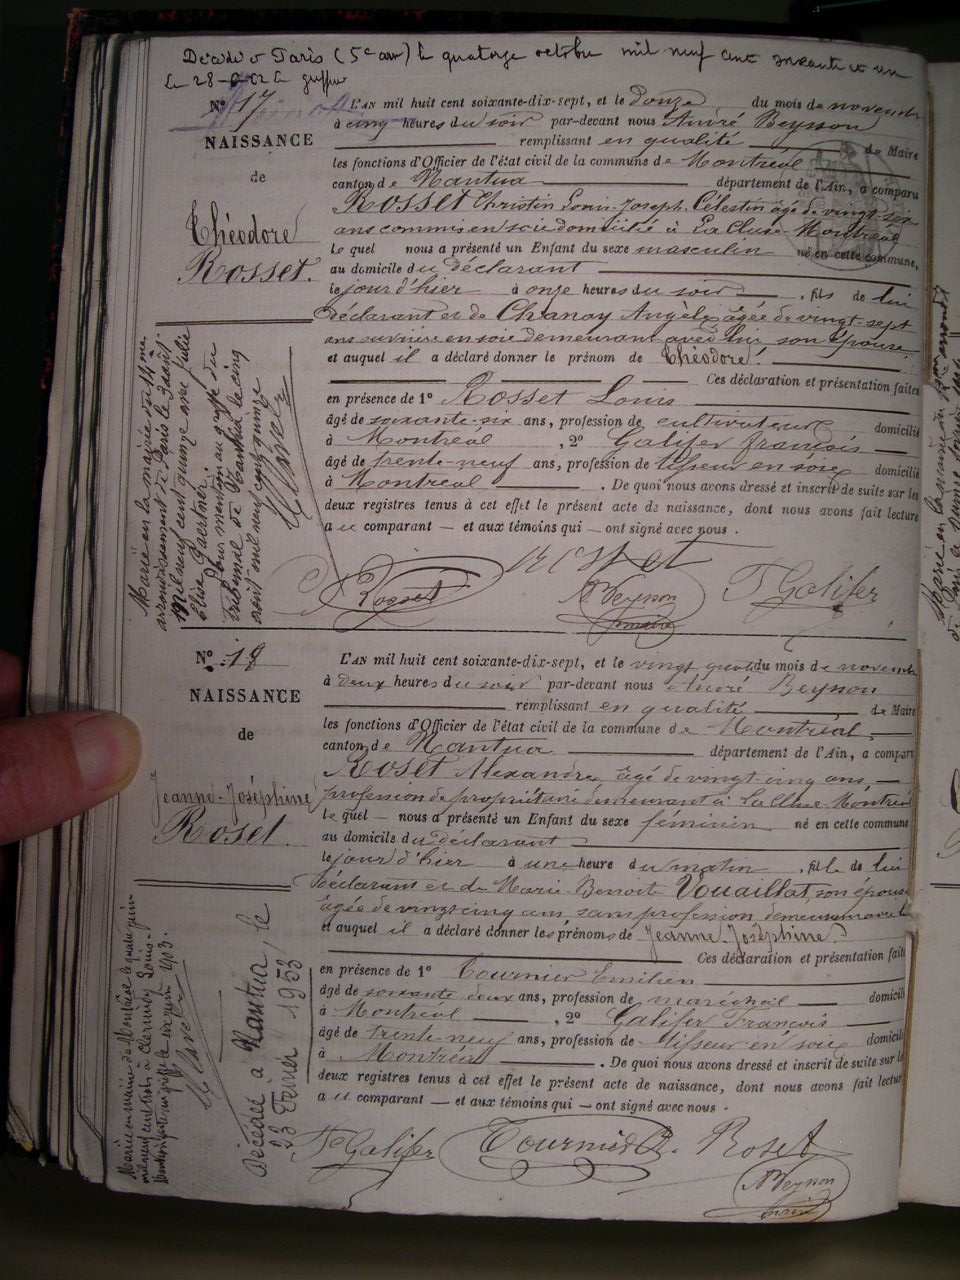 Décédé à Paris (5e arr) le quatorze octobre mil neuf cent soixante et un
Le 28-2-62 le greffier
N° 17
NAISSANCE
de
Théodore
Rosset.
L'AN mil huit cent soixante-dix-sept, et le Douze, du mois de novembre
à cinq heures du soir par-devant nous André Beysson
remplissant en qualité de Maire
les fonctions d'Officier de l'état civil de la commune de Montréal
canton de Nantua département de l'Ain, a comparu
ROSSET Christin Louis Joseph Célestin âgé de vingt-six
ans commis en soie domicilié à La Cluse-Montréal
Le quel nous a présenté un Enfant du sexe masculin né en cette commune,
au domicile du déclarant
le jour d'hier à onze heures du soir, fils de lui
déclarant et de Chanay Angèle âgée de vingt-sept
ans ouvrière en soie demeurant avec lui son épouse,
et auquel il a déclaré donner le prénom de Théodore.
Ces déclaration et présentation faites
en présence de 1° Rosset Louis
âgé de soixante-six ans, profession de cultivateur domicilié
à Montréal, 2° Galifer françois
âgé de trente-neuf ans, profession de tisseur en soie domicilié
à Montréal. De quoi nous avons dressé et inscrit de suite sur les
deux registres tenus à cet effet le présent acte de naissance, dont nous avons fait lecture
au comparant — et aux témoins qui — ont signé avec nous.
Rosset
Rosset
A Beysson
maire
F Galifer
Marié en la mairie du 14me
arrondissement de Paris le 3 août
Mil neuf cent quinze avec Julie
Elise Gaertner.
Pour mention au greffe du
tribunal de Nantua le cinq
août mil neuf cent quinze
N° 18
NAISSANCE
de
Jeanne-Joséphine
Roset.
L'AN mil huit cent soixante-dix-sept, et le vingt quatre du mois de novembre
à deux heures du soir par-devant nous André Beysson
remplissant en qualité de Maire
les fonctions d'Officier de l'état civil de la commune de Montréal,
canton de Nantua département de l'Ain, a comparu
ROSET Alexandre âgé de vingt-cinq ans,
profession de propriétaire demeurant à La Cluse-Montréal
Le quel — nous a présenté un Enfant du sexe féminin né en cette commune
au domicile du déclarant
le jour d'hier à une heure du matin, fille de lui
déclarant et de Marie Benoite Vouaillat, son épouse
âgée de vingt-cinq ans, sans profession, demeurant avec lui
et auquel il a déclaré donner les prénoms de Jeanne-Joséphine.
Ces déclaration et présentation faites
en présence de 1° Tournier Emilien
âgé de soixante deux ans, profession de maréchal domicilié
à Montréal, 2° Galifer François
âgé de trente-neuf ans, profession de tisseur en soie domicilié
à Montréal. De quoi nous avons dressé et inscrit de suite sur les
deux registres tenus à cet effet le présent acte de naissance, dont nous avons fait lecture
au comparant — et aux témoins qui — ont signé avec nous.
F Galifer
Tournier E.
Roset
A Beysson
maire
Mariée en mairie de Montréal le quatre juin
mil neuf cent trois à Clermidy Louis.
Mention faite au greffe le six juin 1903.
Décédée à Nantua, le
23 Février 1953